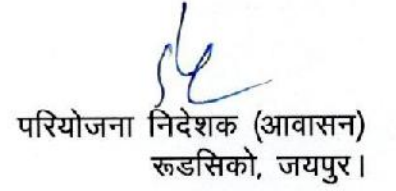 परियोजना निदेशक (आवासन)
रूडसिको, जयपुर।